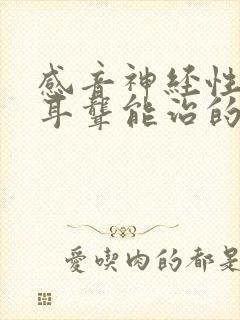 感音神经性
耳聋能治的
爱喫肉的都是